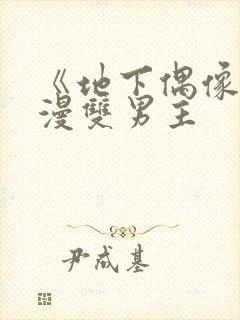 《地下偶像
漫雙男主
尹成基